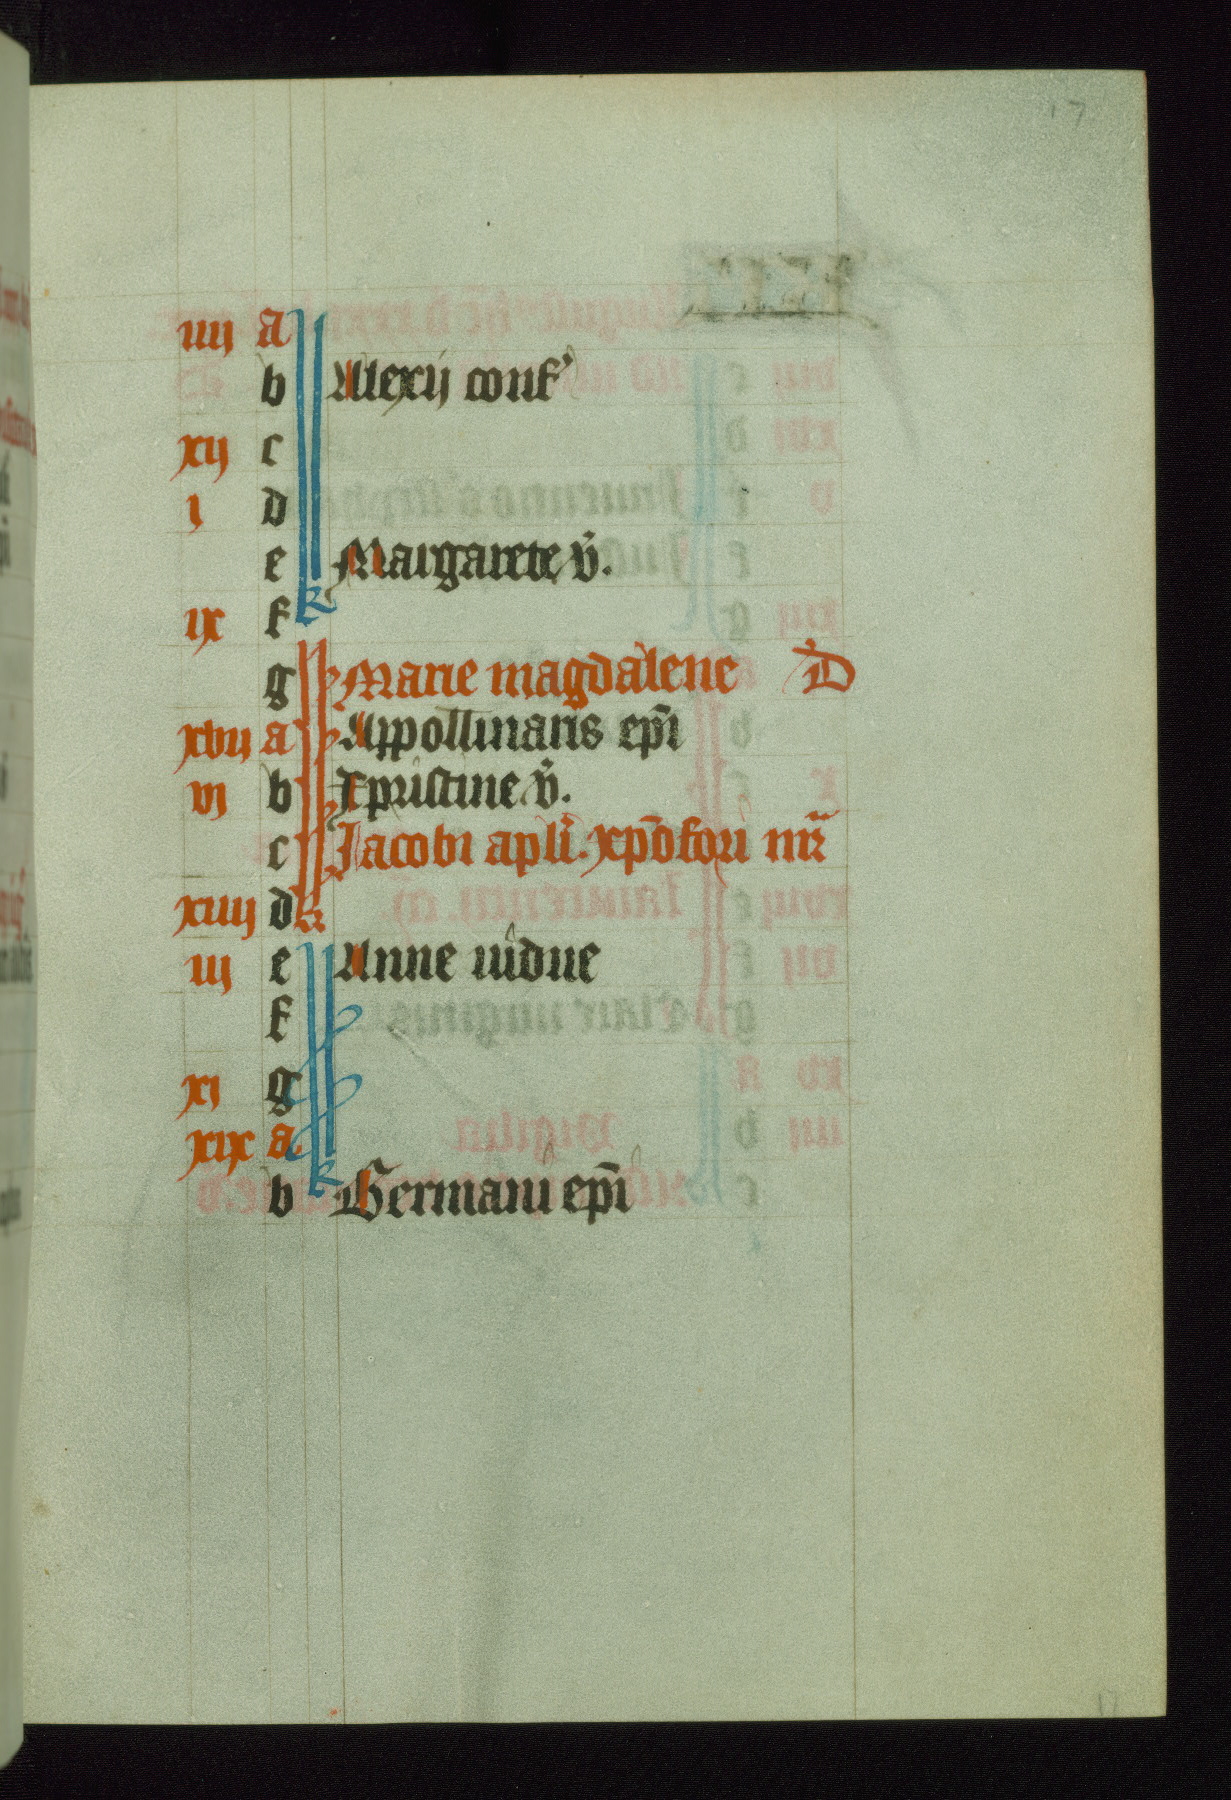 17
iiij a
b Alexij conf'
xij c
i d
e Margarete v̄.
ix f
g Marie magdalene D
xvij a Appollinaris ep̄i
vj b Xpristine v̄.
c Jacobi apl̄i. xp̄ofori mr̄
xiiij d
iij e Anne uidue
f
xj g
xix a
b Germani ep̄i
17